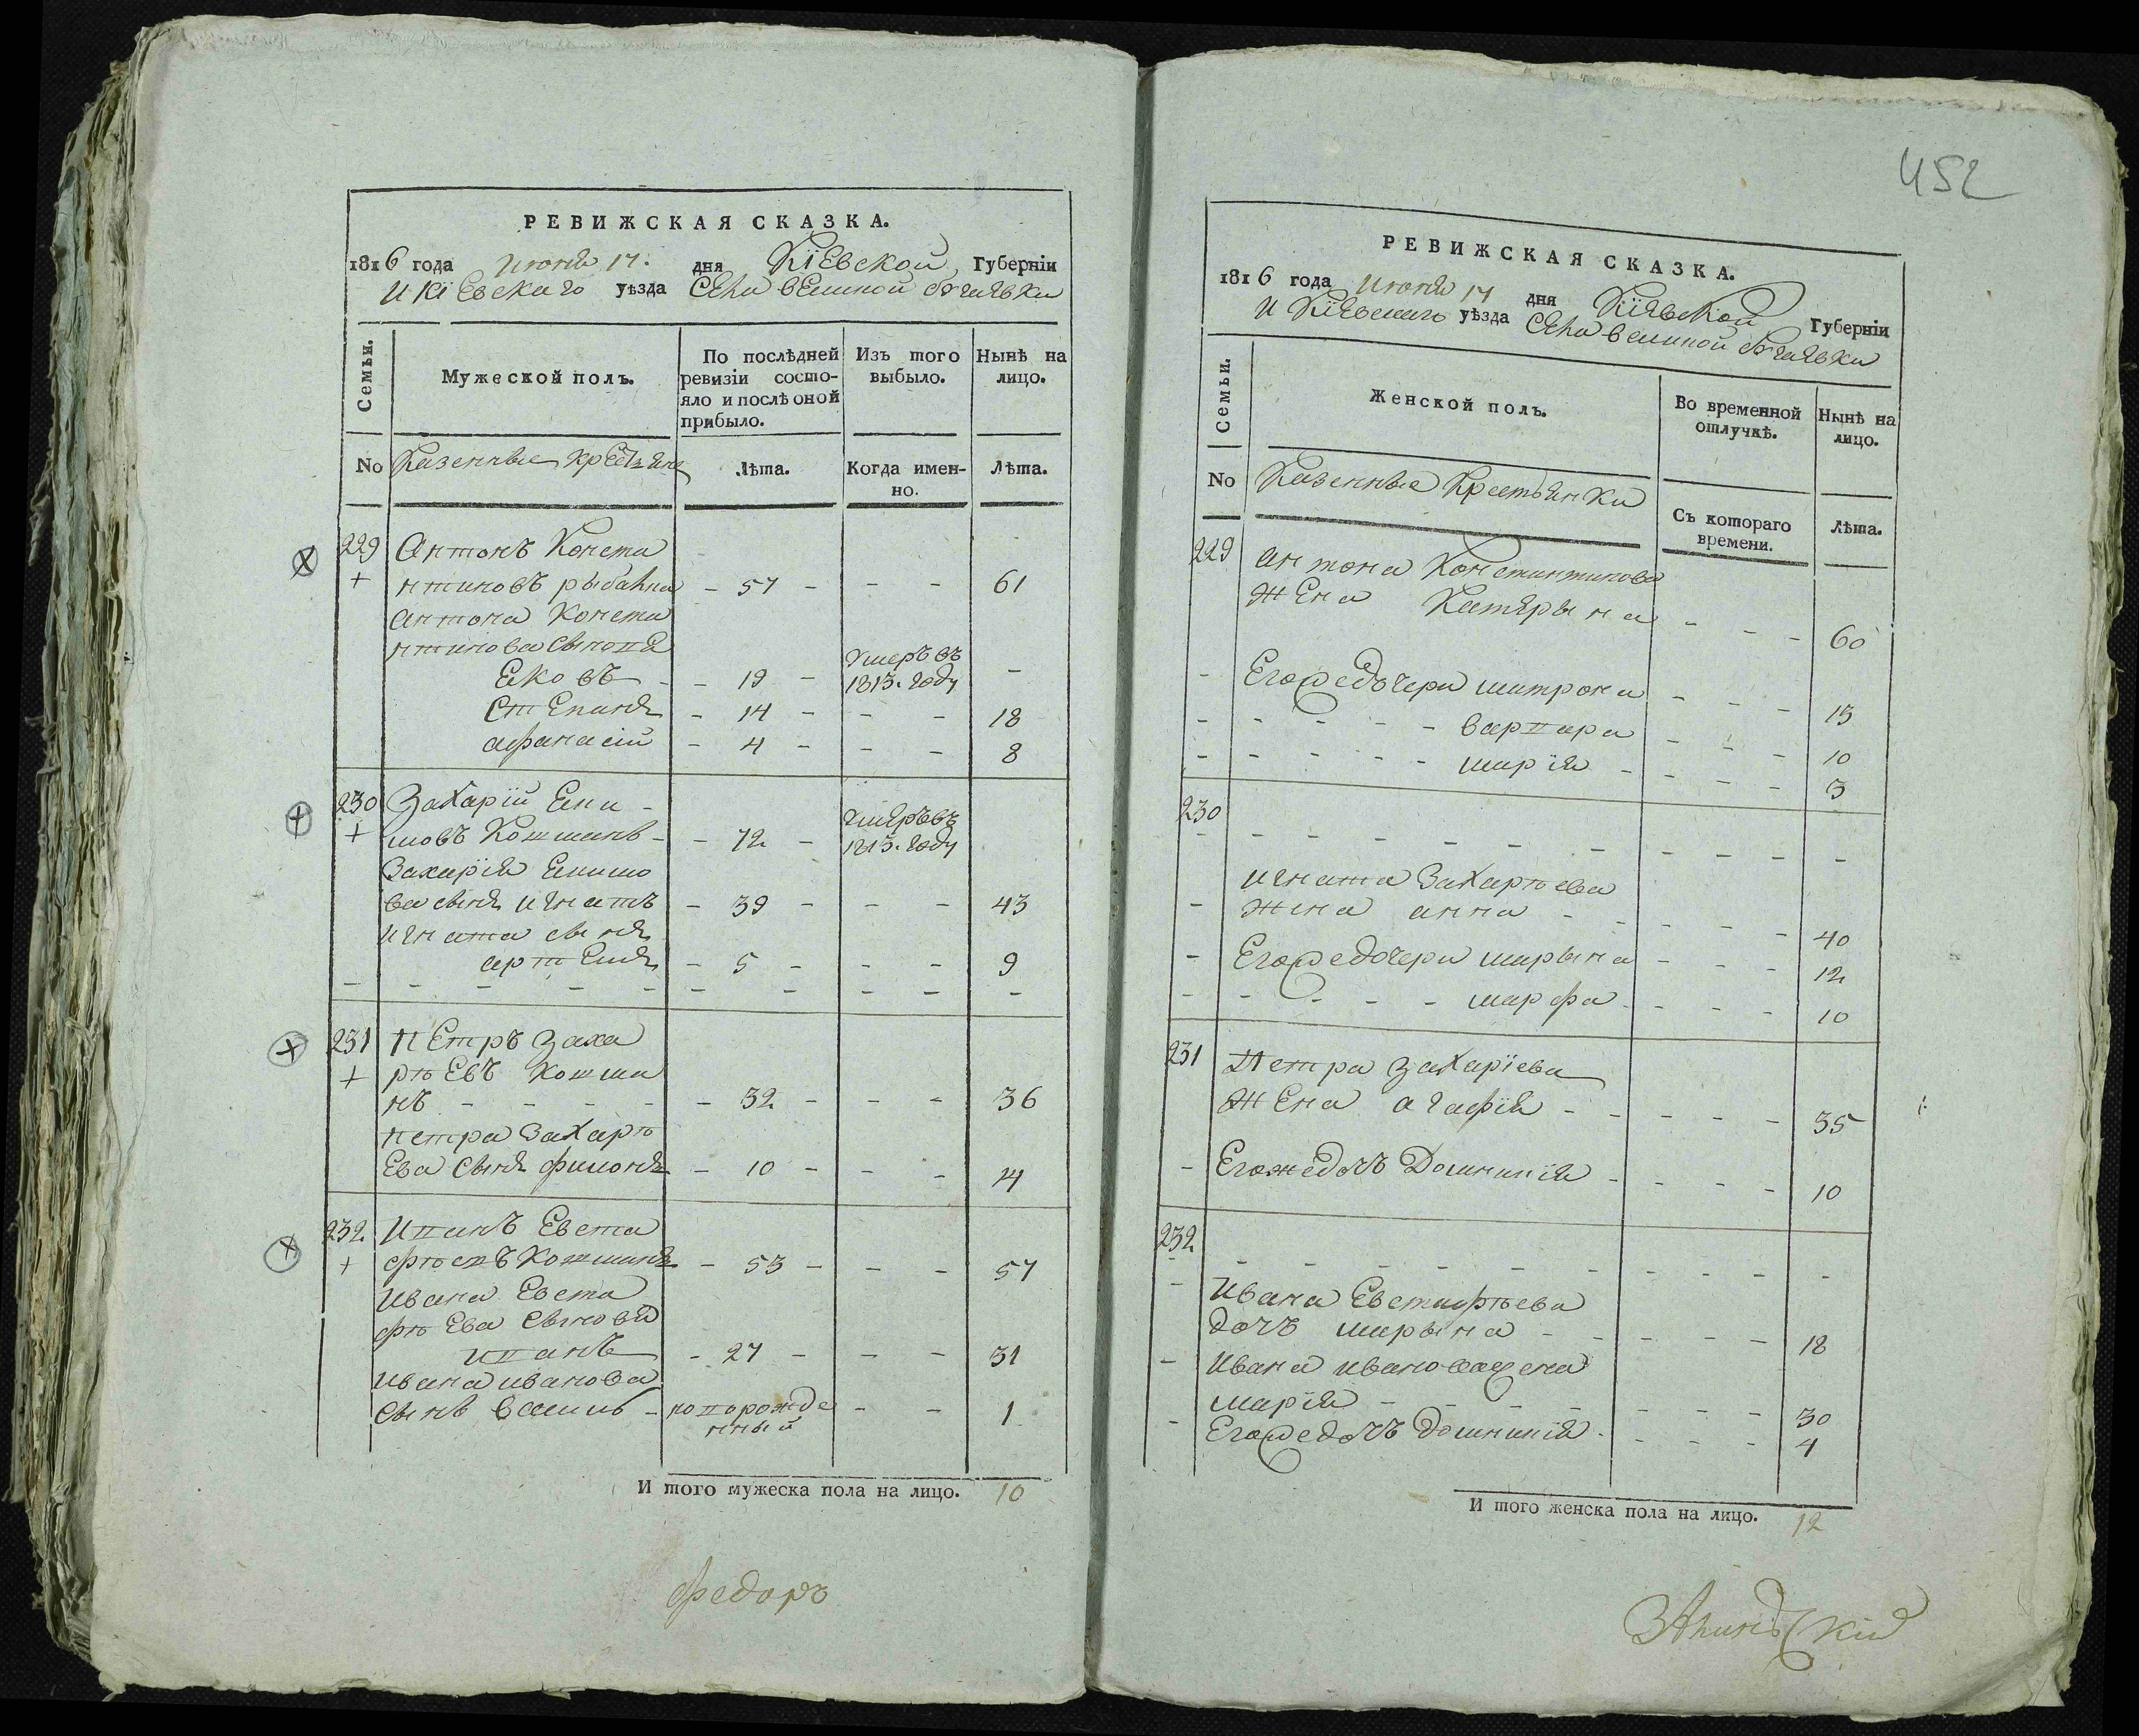 452
РЕВИЖСКАЯ СКАЗКА.
1816 года июня 17. дня Кіевской Губерніи
и Кіевскаго уѣзда Села великой
Семьи. Мужеской полъ. По послѣдней ревизіи состояло и послѣ оной прибыло. Изъ того выбыло. Нынѣ на лицо.
No Казенные крестьяне Лѣта. Когда именно. Лѣта.
229 Антонъ Конста
нтиновъ - 57 - - - 61
Антона Конста
нтинова сыновя
Яковъ - - 19 - умеръ въ 1813. году -
Степанъ - 14 - - - 18
афанасій - 4 - - - 8
230 Захарій Яки -
мовъ Кошманъ - - 72 - умеръ въ 1813. году
Захарія Якимо
ва сынъ игнатъ - 39 - - - 43
игната сынъ
артемъ - 5 - - - 9
231 Петръ Заха
рьевъ кошма
нъ - - - - - 32 - - - 36
петра Захарь
ева сынъ филонъ - 10 - - - 14
232 Иванъ Евста
фьевъ Кошманъ - 53 - - - 57
Ивана Евста
фьева сыновя
иванъ - 27 - - - 31
ивана иванова
сынъ василь - новорожде нный - - 1
И того мужеска пола на лицо. 10
федоръ
РЕВИЖСКАЯ СКАЗКА.
1816 года июня 17 дня Кіевской Губерніи
и Кіевскаго уѣзда Села великой
Семьи. Женской полъ. Во временной отлучкѣ. Нынѣ на лицо.
No Казенные Крестьянки Съ котораго времени. Лѣта.
229 антона Константинова
жена Катерына - - - 60
- Егожедочери матрона - - - 15
- - - - - варвара - - - 10
- - - - - марія - - - - 3
230 - - - - - - - - - -
игната Захарьева
- жена анна - - - - - 40
- Егожедочери марына - - - 12
- - - - - марфа - - - - 10
231 Петра Захаріева
жена агафія - - - - - 35
- Егожедочъ Домникія - - - - 10
232 - - - - - - - - - -
- Ивана Евстафьева
дочъ марына - - - - - 18
- Ивана иванова жена
марія - - - - - - - 30
- Егожедочъ домникія - - - - 4
И того женска пола на лицо. 12